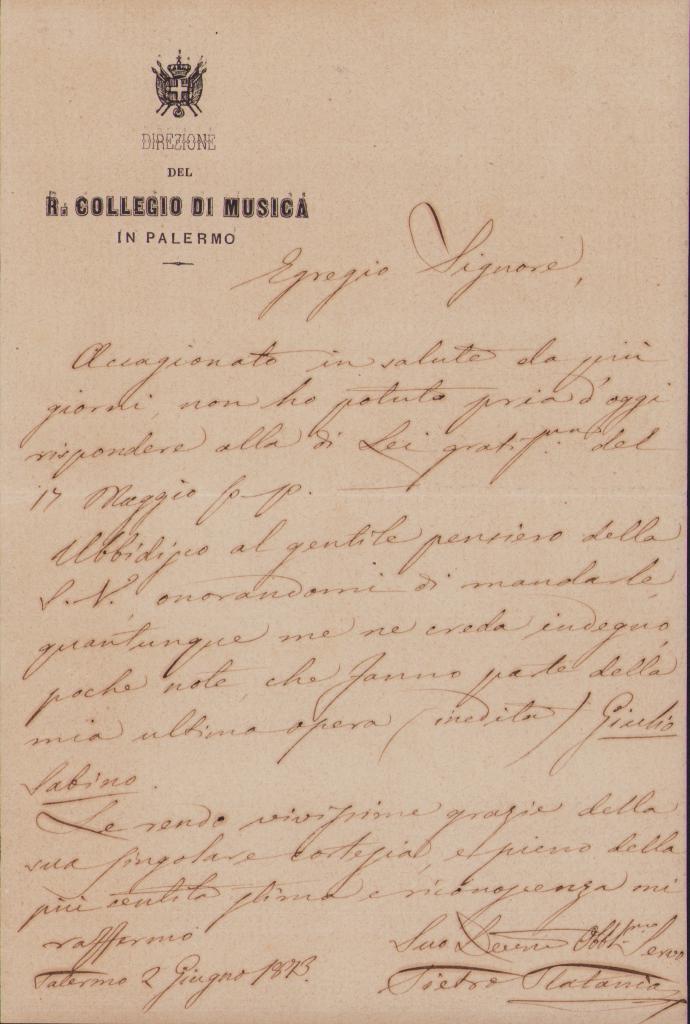 DIREZIONE
DEL
R.o COLLEGIO DI MUSICA
IN PALERMO
Egregio Signore,
Accagionato in salute da più
giorni, non ho potuto pria d'oggi
rispondere alla di Lei gratis.ma del
17 Maggio p.p.
Ubbidisco al gentile pensiero della
S.V. onorandomi di mandarle,
quantunque me ne creda indegno,
poche note, che fanno parte della
mia ultima opera (inedita) Giulio
Sabino.
Le rendo vivissime grazie della
sua singolare cortesia, e pieno della
più sentita stima e riconoscenza mi
raffermo
Palermo 2 Giugno 1873.
Suo Obbl.mo Servo
Pietro Platania